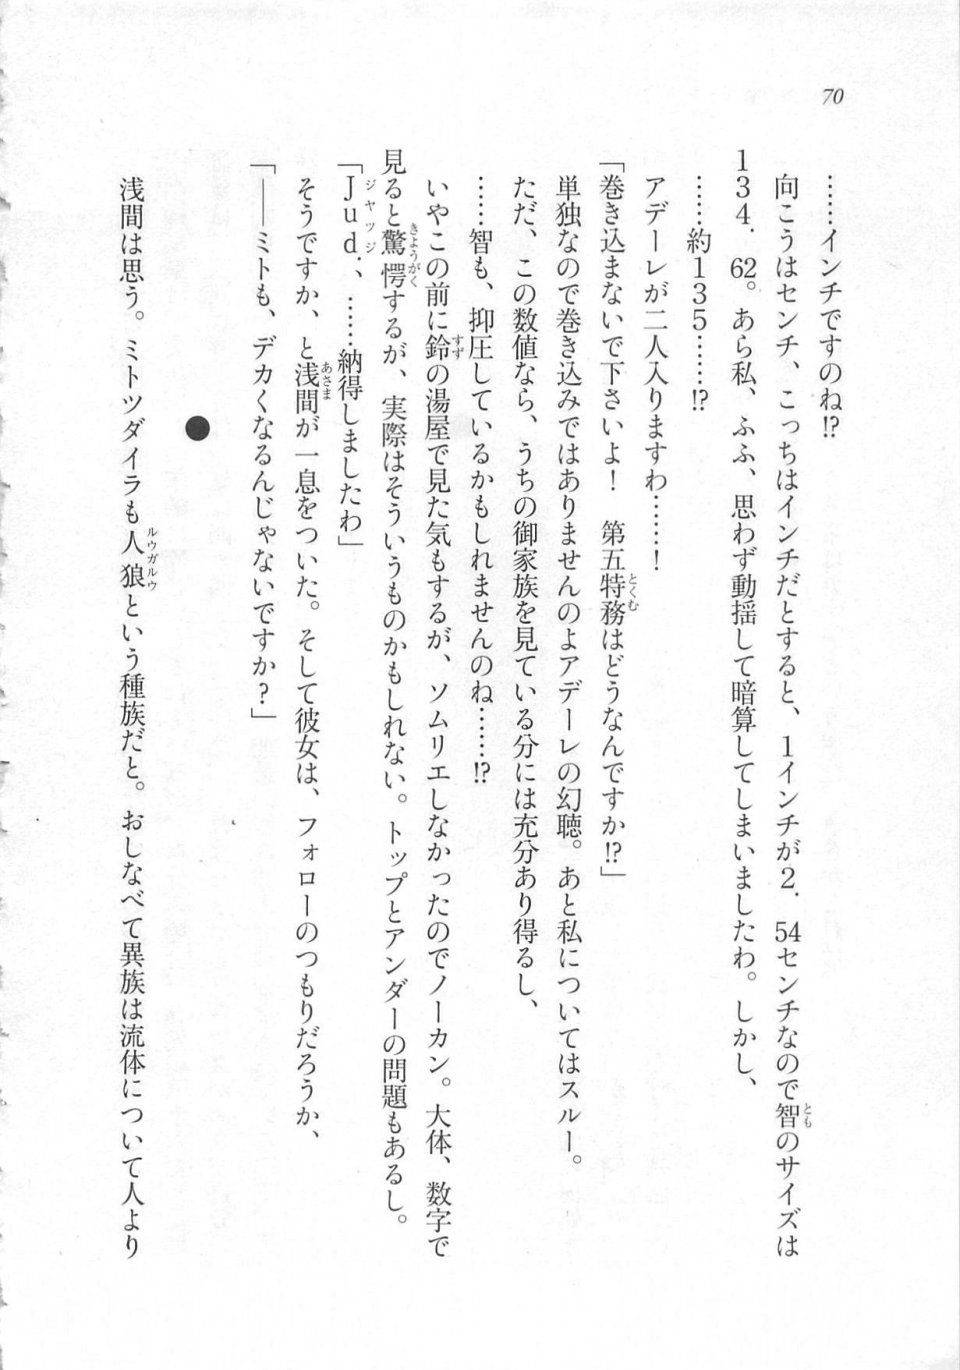 70
……インチですのね!?
向こうはセンチ、こっちはインチだとすると、1インチが2．54センチなので智のサイズは
134．62。あら私、ふふ、思わず動揺して暗算してしまいましたわ。しかし、
……約135……!?
アデーレが二人入りますわ……！
「巻き込まないで下さいよ！　第五特務はどうなんですか!?」
単独なので巻き込みではありませんのよアデーレの幻聴。あと私についてはスルー。
ただ、この数値なら、うちの御家族を見ている分には充分あり得るし、
……智も、抑圧しているかもしれませんのね……!?
いやこの前に鈴の湯屋で見た気もするが、ソムリエしなかったのでノーカン。大体、数字で
見ると驚愕するが、実際はそういうものかもしれない。トップとアンダーの問題もあるし。
「Ｊｕｄ．、……納得しましたわ」
そうですか、と浅間が一息をついた。そして彼女は、フォローのつもりだろうか、
「――ミトも、デカくなるんじゃないですか？」
●
浅間は思う。ミトツダイラも人狼という種族だと。おしなべて異族は流体について人より